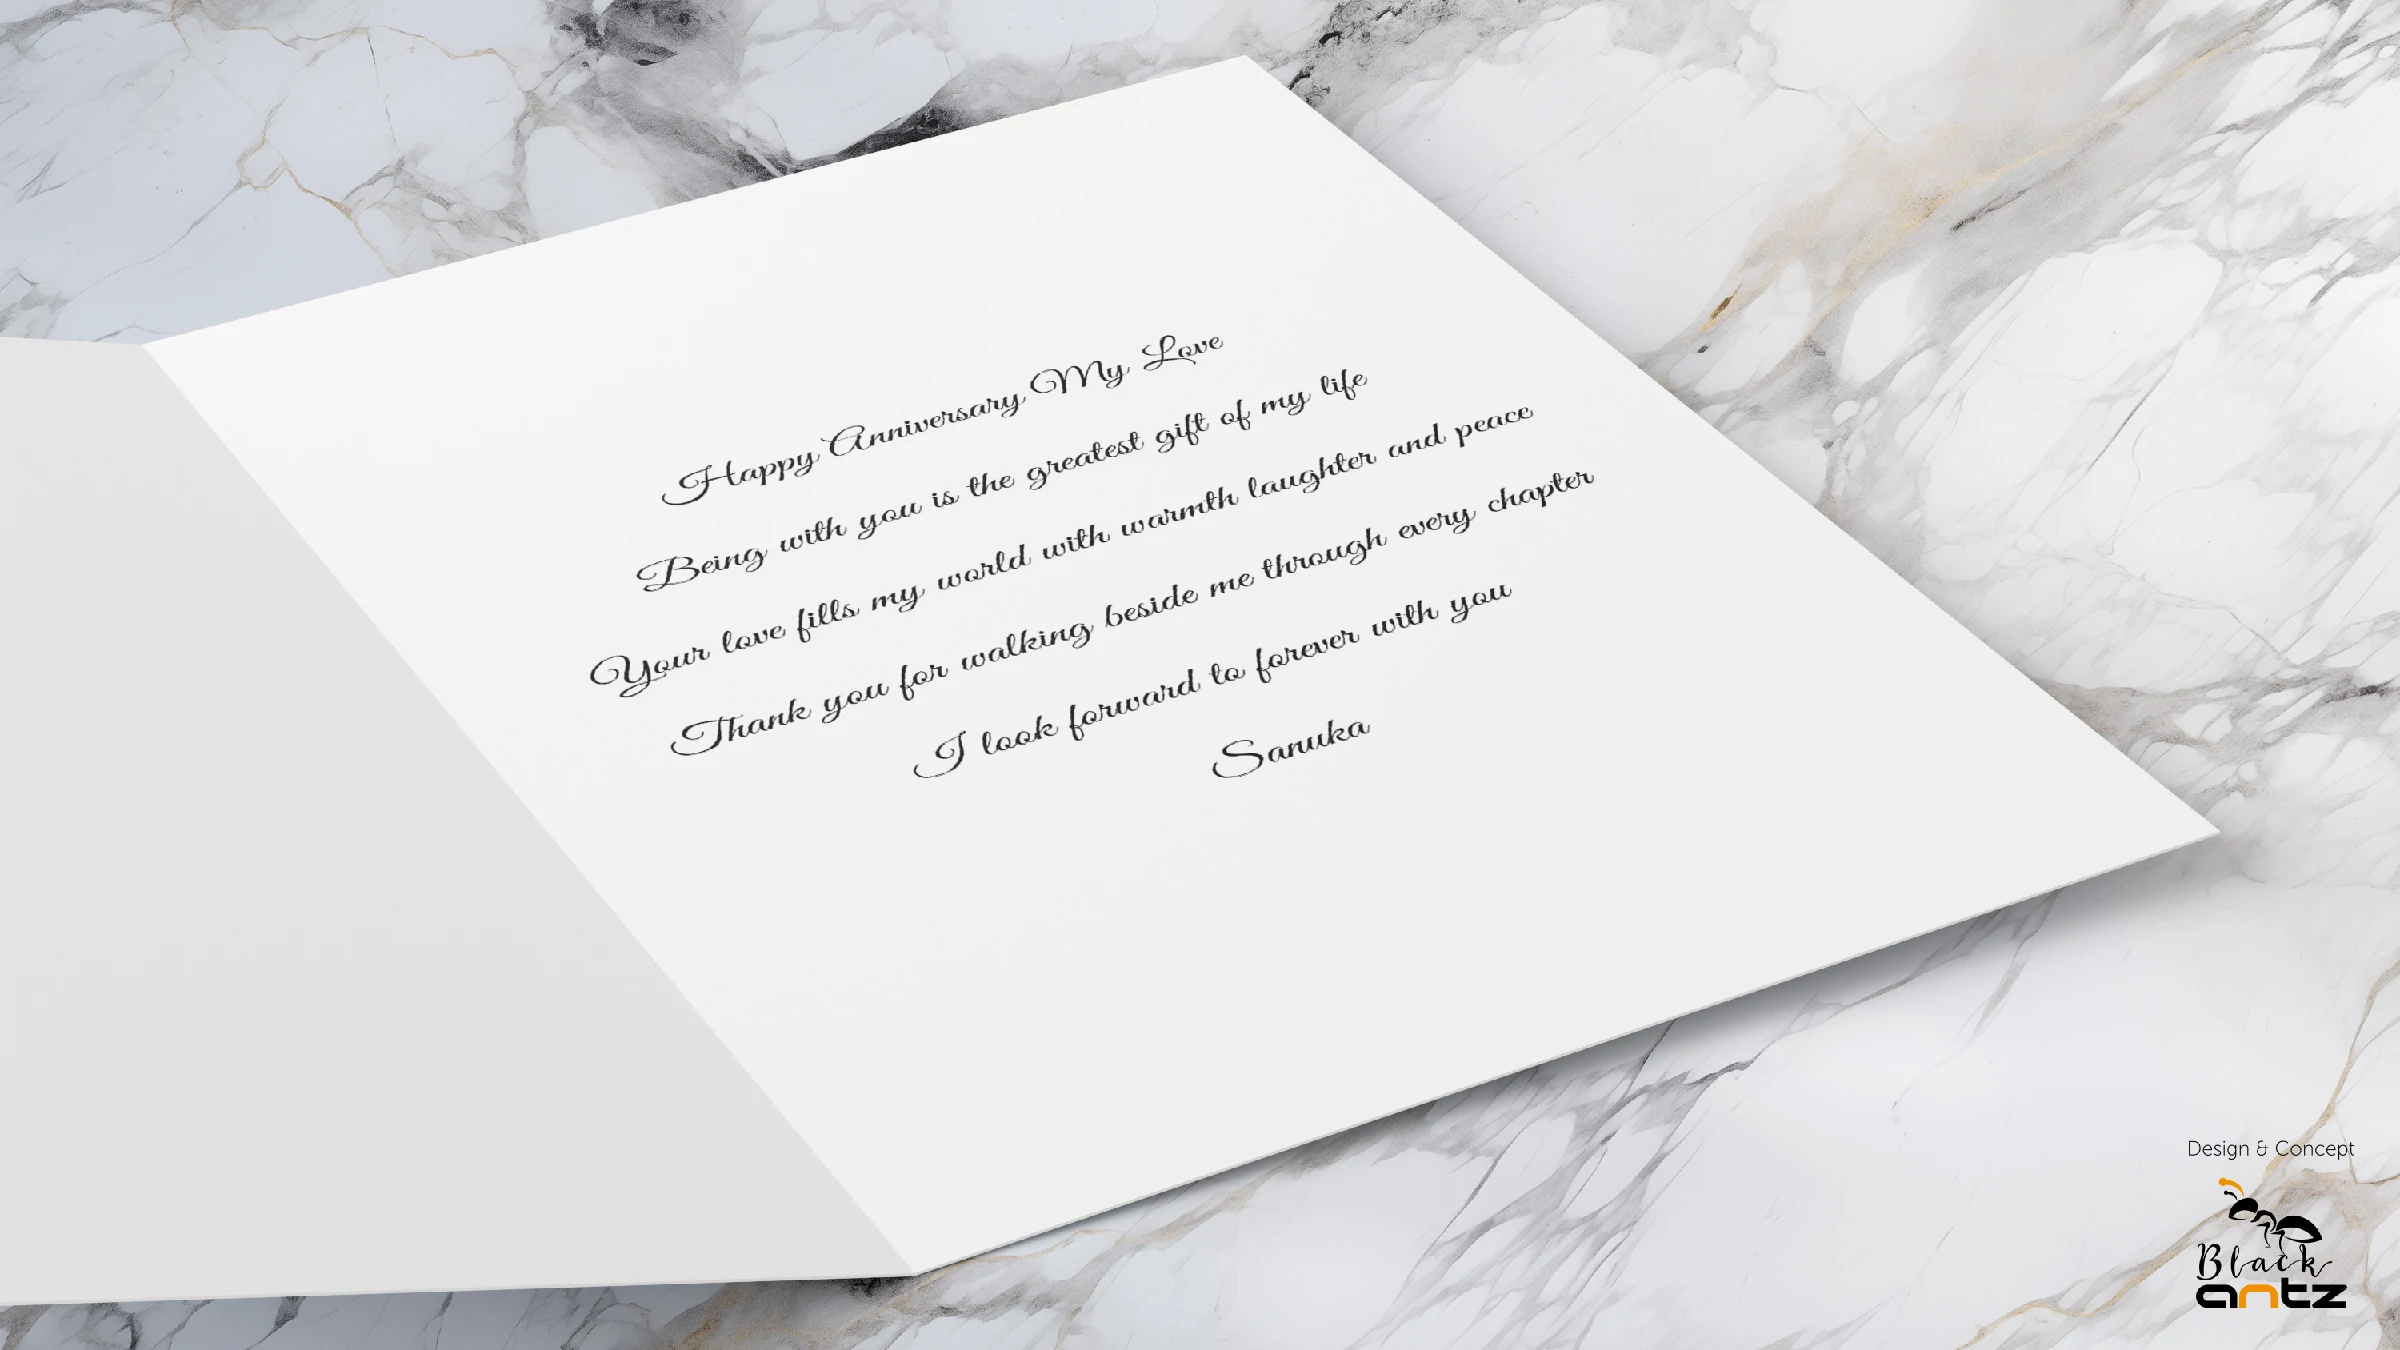 Happy Anniversary My Love
Being with you is the greatest gift of my life
Your love fills my world with warmth laughter and peace
Thank you for walking beside me through every chapter
I look forward to forever with you
Sanuka
Design & Concept
Black
antz